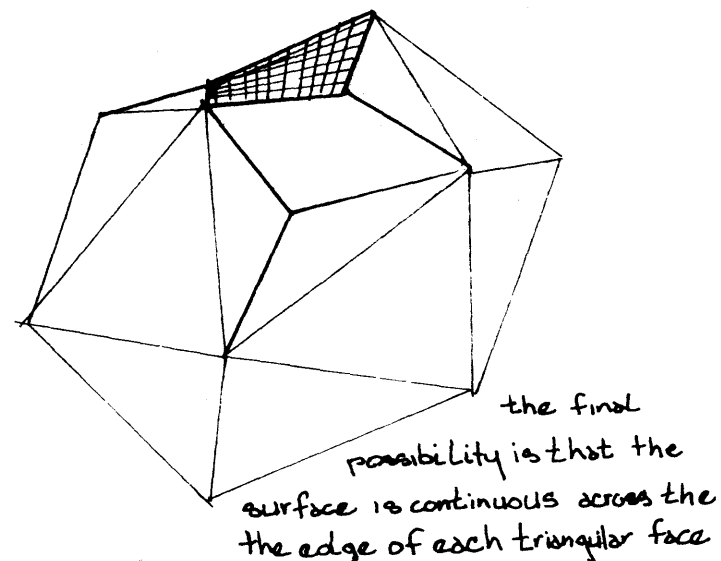 the final
possibility is that the
surface is continuous across the
the edge of each triangular face